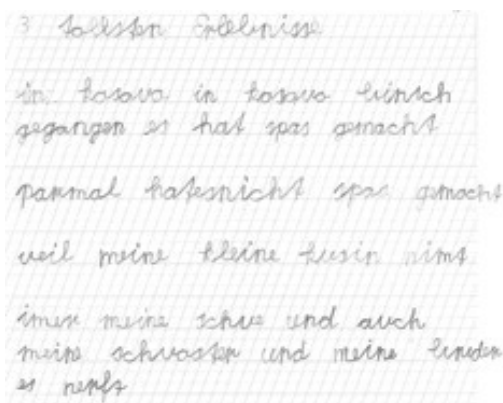 3 tollsten Erlebnisse
in kosovo in kosovo binsch
gegangen es hat spas gemacht
parmal hatesnicht spas gemacht
weil meine kleine kusin nimt
imer meine schue und auch
meine schwester und meine bruder
es nerft